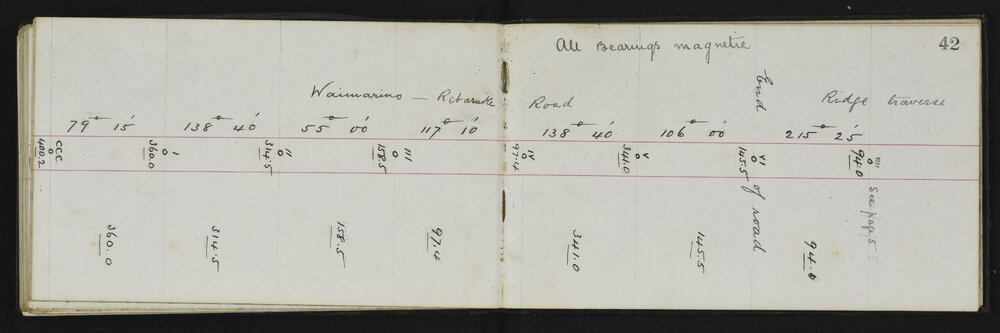 All Bearings magnetic 42
Waimarino — Retaruke Road Ridge traverse
79° 15' 138° 40' 55° 00' 117° 10' 138° 40' 106° 00' 215° 25'
CCC I II III IV V VI VII
400.2 360.0 314.5 158.5 97.4 341.0 145.5 94.0
End of road
See page 55
360.0 314.5 158.5 97.4 341.0 145.5 94.0